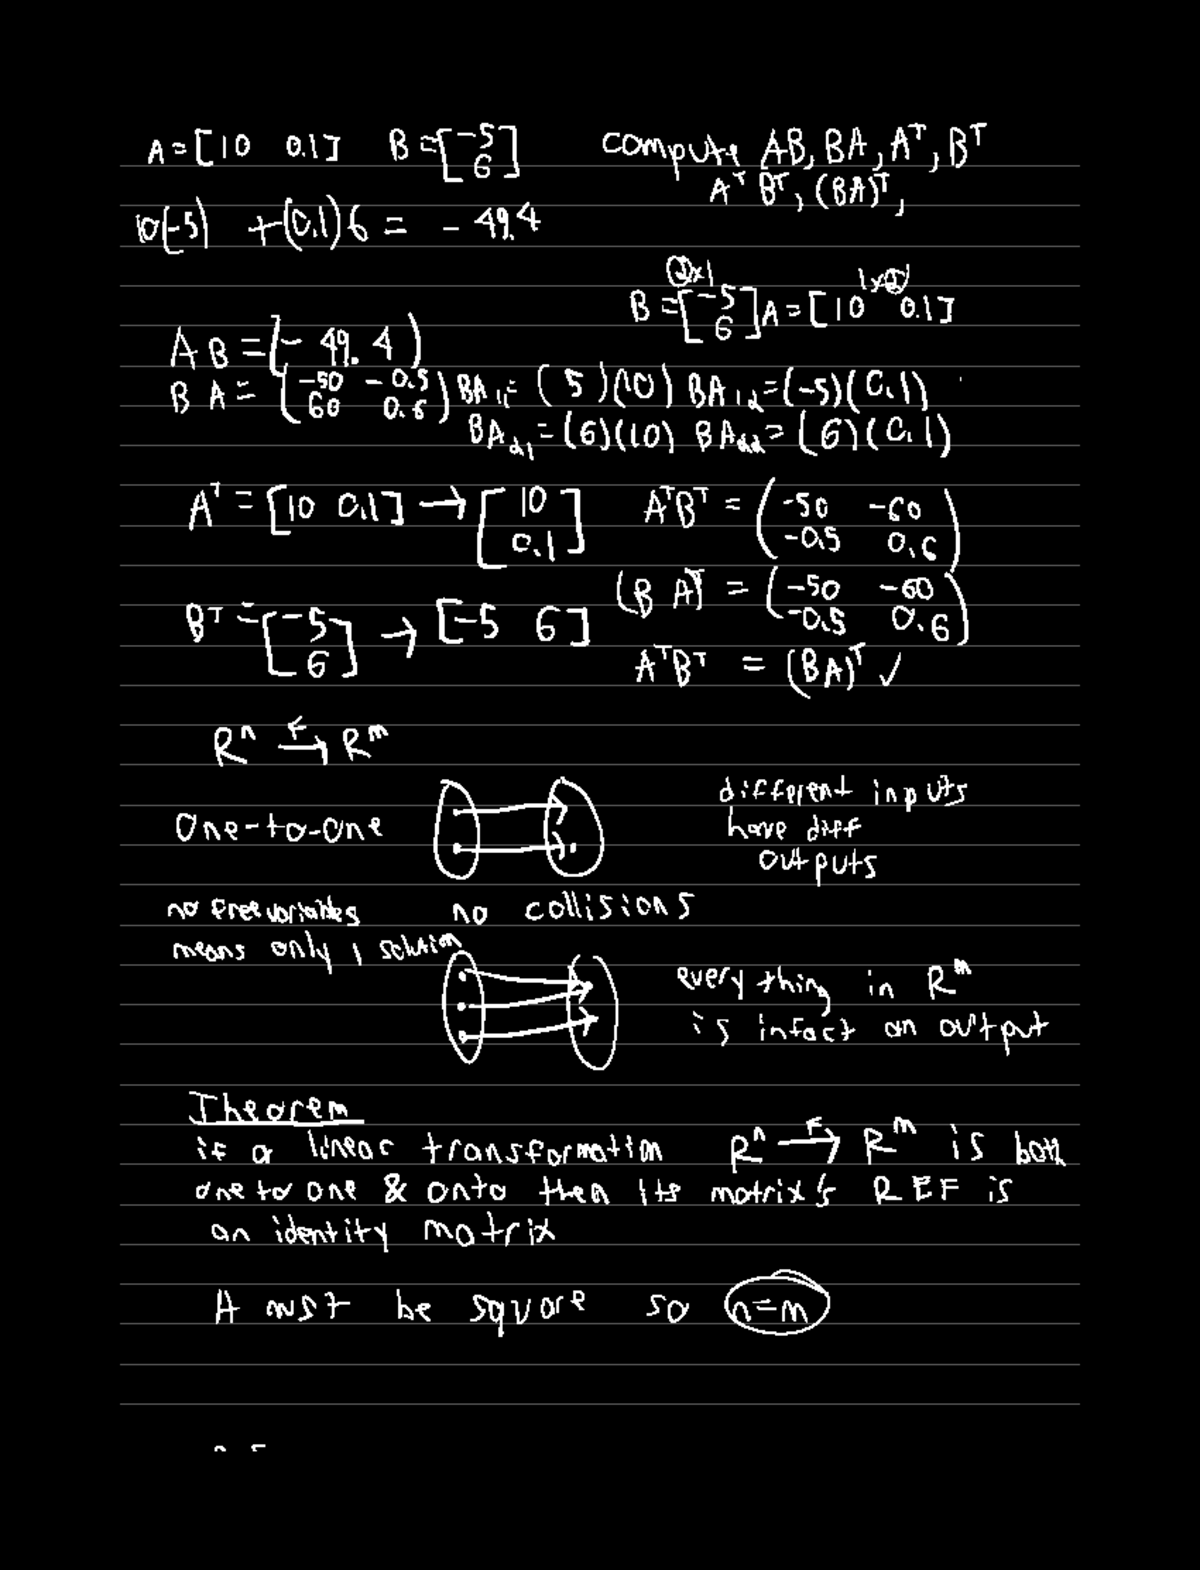 A = [10 0.1] B = [-5 6] compute AB, BA, Aᵀ, Bᵀ
Aᵀ Bᵀ, (BA)ᵀ,
10(-5) + (0.1)6 = - 49.4
2x1 1x2
B = [-5 6] A = [10 0.1]
AB = (- 49.4)
BA = (-50 -0.5 60 0.6) BA₁₁ = (5)(10) BA₁₂ = (-5)(0.1)
BA₂₁ = (6)(10) BA₂₂ = (6)(0.1)
Aᵀ = [10 0.1] → [10 0.1] AᵀBᵀ = (-50 -60 -0.5 0.6)
(BA)ᵀ = (-50 -60 -0.5 0.6)
Bᵀ = [-5 6] → [-5 6]
AᵀBᵀ = (BA)ᵀ ✓
Rⁿ F→ Rᵐ
different inputs
one-to-one have diff
outputs
no free variables no collisions
means only 1 solution
every thing in Rᵐ
is infact an output
Theorem
if a linear transformation Rⁿ F→ Rᵐ is both
one to one & onto then its matrix's REF is
an identity matrix
A must be square so n=m